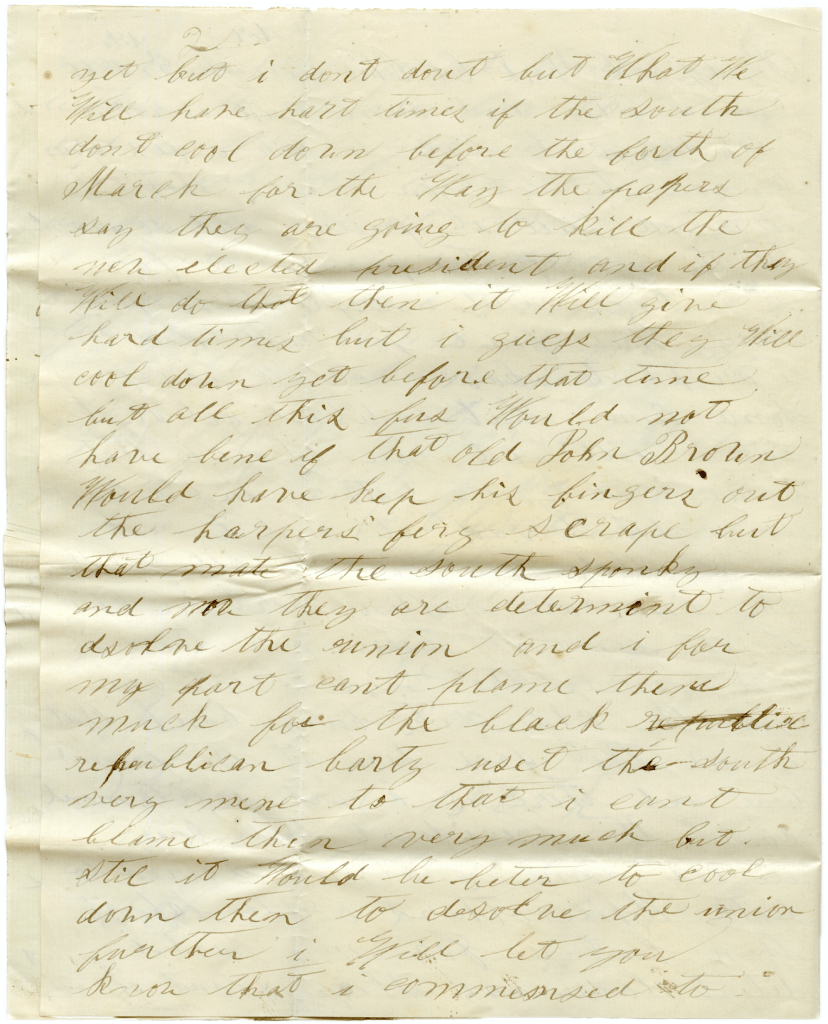 2
yet but i dont dout but What We
Will have hart times if the south
dont cool down before the forth of
March for the Way the papers
say they are going to kill the
new elected president and if they
Will do that then it Will give
hard times but i guess they Will
cool down yet before that time
but all this fus Would not
have bene if that old John Brown
Would have kep his fingers out
the harpers ferg scrape but
that mate the south sponky
and now they are determint to
dsolve the union and i for
my part cant plame there
much for the black republic
republican barty uset the south
very mene to that i cant
blame then very much but
stil it Would be beter to cool
down then to desolve the union
further i Will let you
know that i commensed to